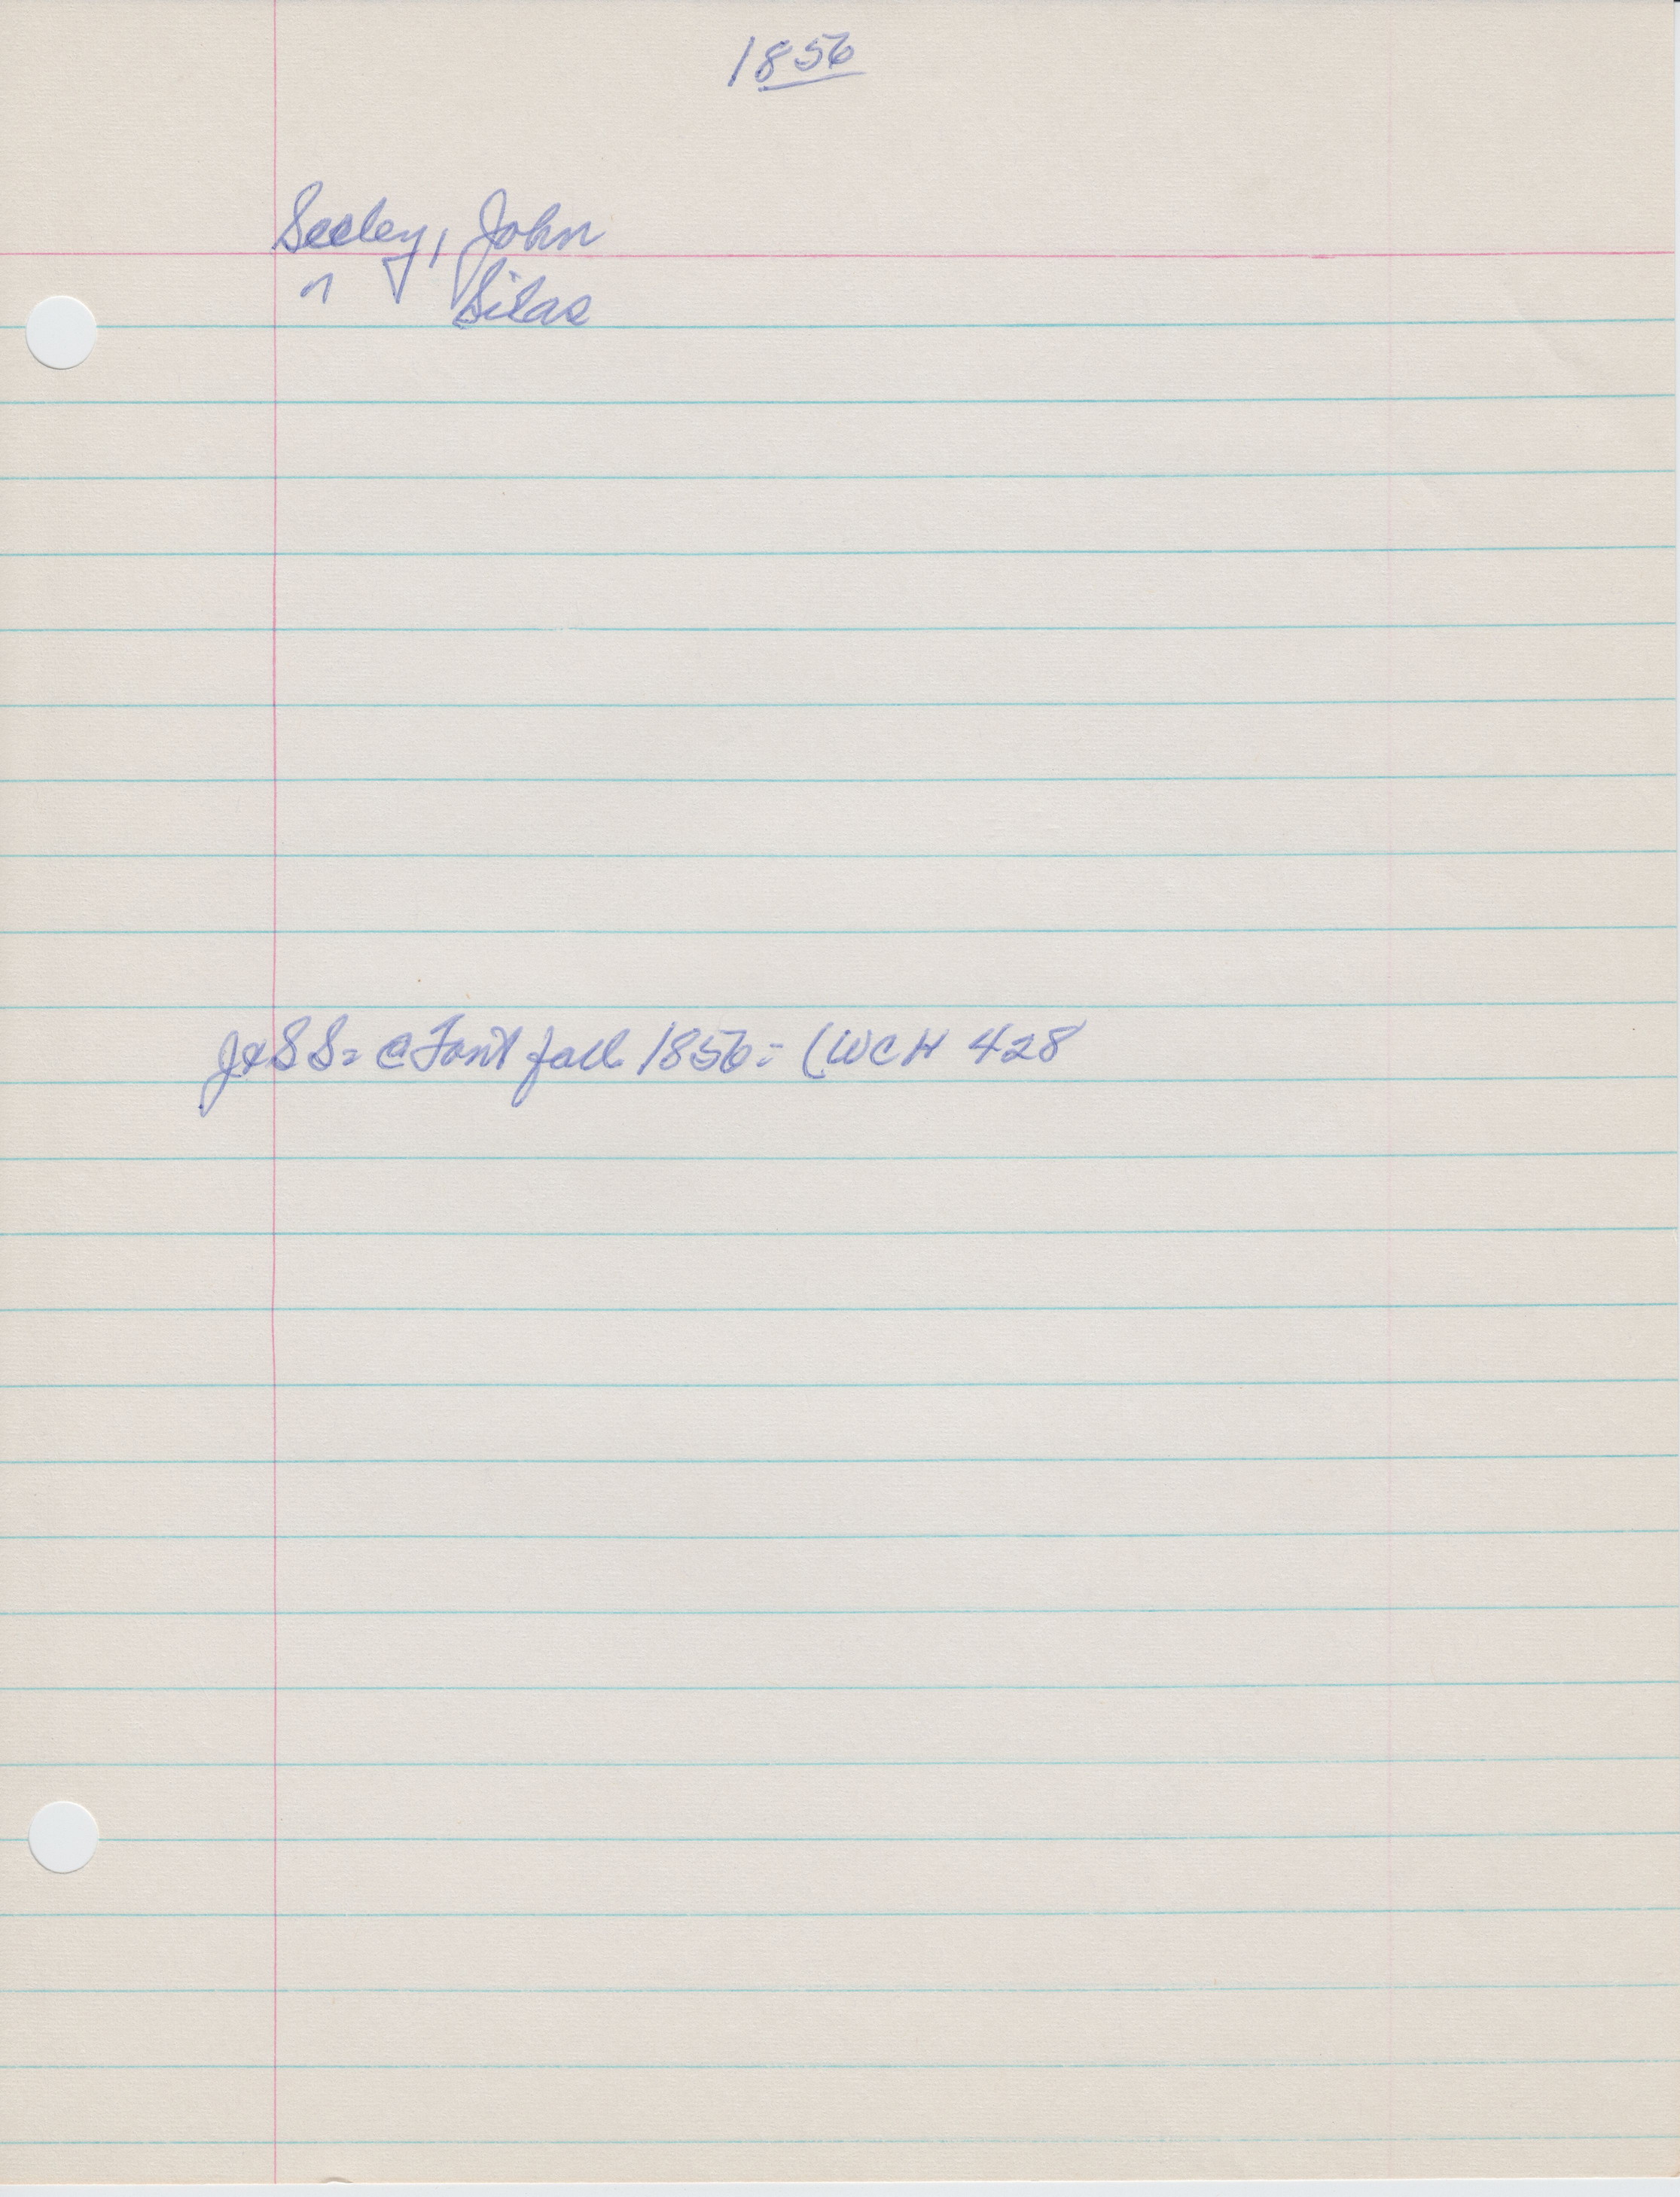 1856
Seeley, John
" Silas
J & S S = @ Font fall 1856 = (WCH 428